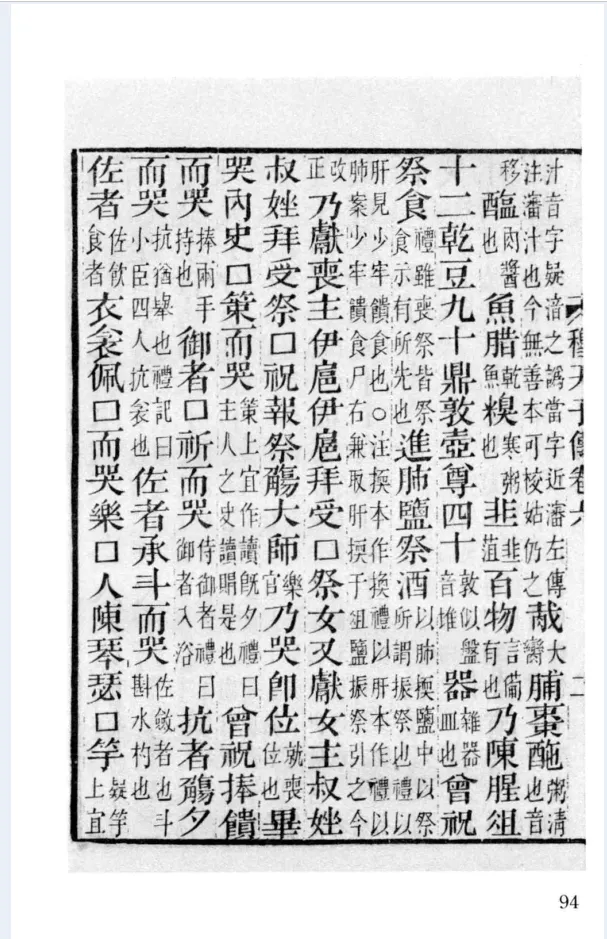 穆天子傳卷六 二
汁音字疑涪之譌當字近瀋左傳注瀋汁也今無善本可校姑仍之哉大臠脯棗䤃粥清也音
移醢肉醬也魚腊乾魚糗寒粥也韭韭菹百物言備有也乃陳腥俎
十二乾豆九十鼎敦壺尊四十敦似盤音堆器雜器皿也曾祝
祭食禮雖喪祭皆祭食示有所先也進肺鹽祭酒以肺揳鹽中以祭所謂振祭也禮以
肝見少牢饋食也○注揳本作換禮以肝本作禮以肺案少牢饋食尸右兼取肝揳于俎鹽振祭引之今
改正乃獻喪主伊扈伊扈拜受□祭女又獻女主叔㛗
叔㛗拜受祭□祝報祭觴大師樂官乃哭卽位就喪位也畢
哭內史□策而哭策上宜作讀旣夕禮曰主人之史讀賵是也曾祝捧饋
而哭捧兩手持也御者□祈而哭侍御者禮曰御者入浴抗者觴夕
而哭抗猶舉也禮記曰小臣四人抗衾也佐者承斗而哭佐斂者也斗斟水杓也
佐者佐飲食者衣衾佩□而哭樂□人陳琴瑟□竽疑竽上宜
94